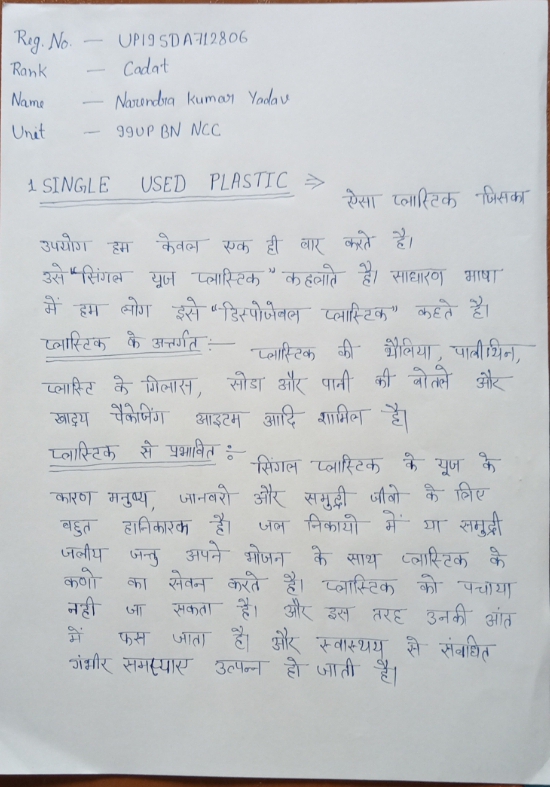 Reg. No. — UP19SDA712806
Rank — Cadat
Name — Narendra Kumar Yadav
Unit — 99UP BN NCC
1 SINGLE USED PLASTIC ⇒ ऐसा प्लास्टिक जिसका
उपयोग हम केवल एक ही बार करते है।
उसे "सिंगल यूज प्लास्टिक" कहलाते है। साधारण भाषा
में हम लोग इसे "डिस्पोजेबल प्लास्टिक" कहते है।
प्लास्टिक के अन्तर्गत :— प्लास्टिक की थैलिया, पालीथिन,
प्लास्टि के गिलास, सोडा और पानी की बोतले और
खाद्य पैकेजिंग आइटम आदि शामिल है।
प्लास्टिक से प्रभावित :— सिंगल प्लास्टिक के यूज के
कारण मनुष्य, जानवरो और समुद्री जीवो के लिए
बहुत हानिकारक है। जल निकायो में या समुद्री
जलीय जन्तु अपने भोजन के साथ प्लास्टिक के
कणो का सेवन करते है। प्लास्टिक को पचाया
नही जा सकता है। और इस तरह उनकी आंत
में फस जाता है। और स्वास्थय से संबधित
गंभीर समस्याए उत्पन्न हो जाती है।